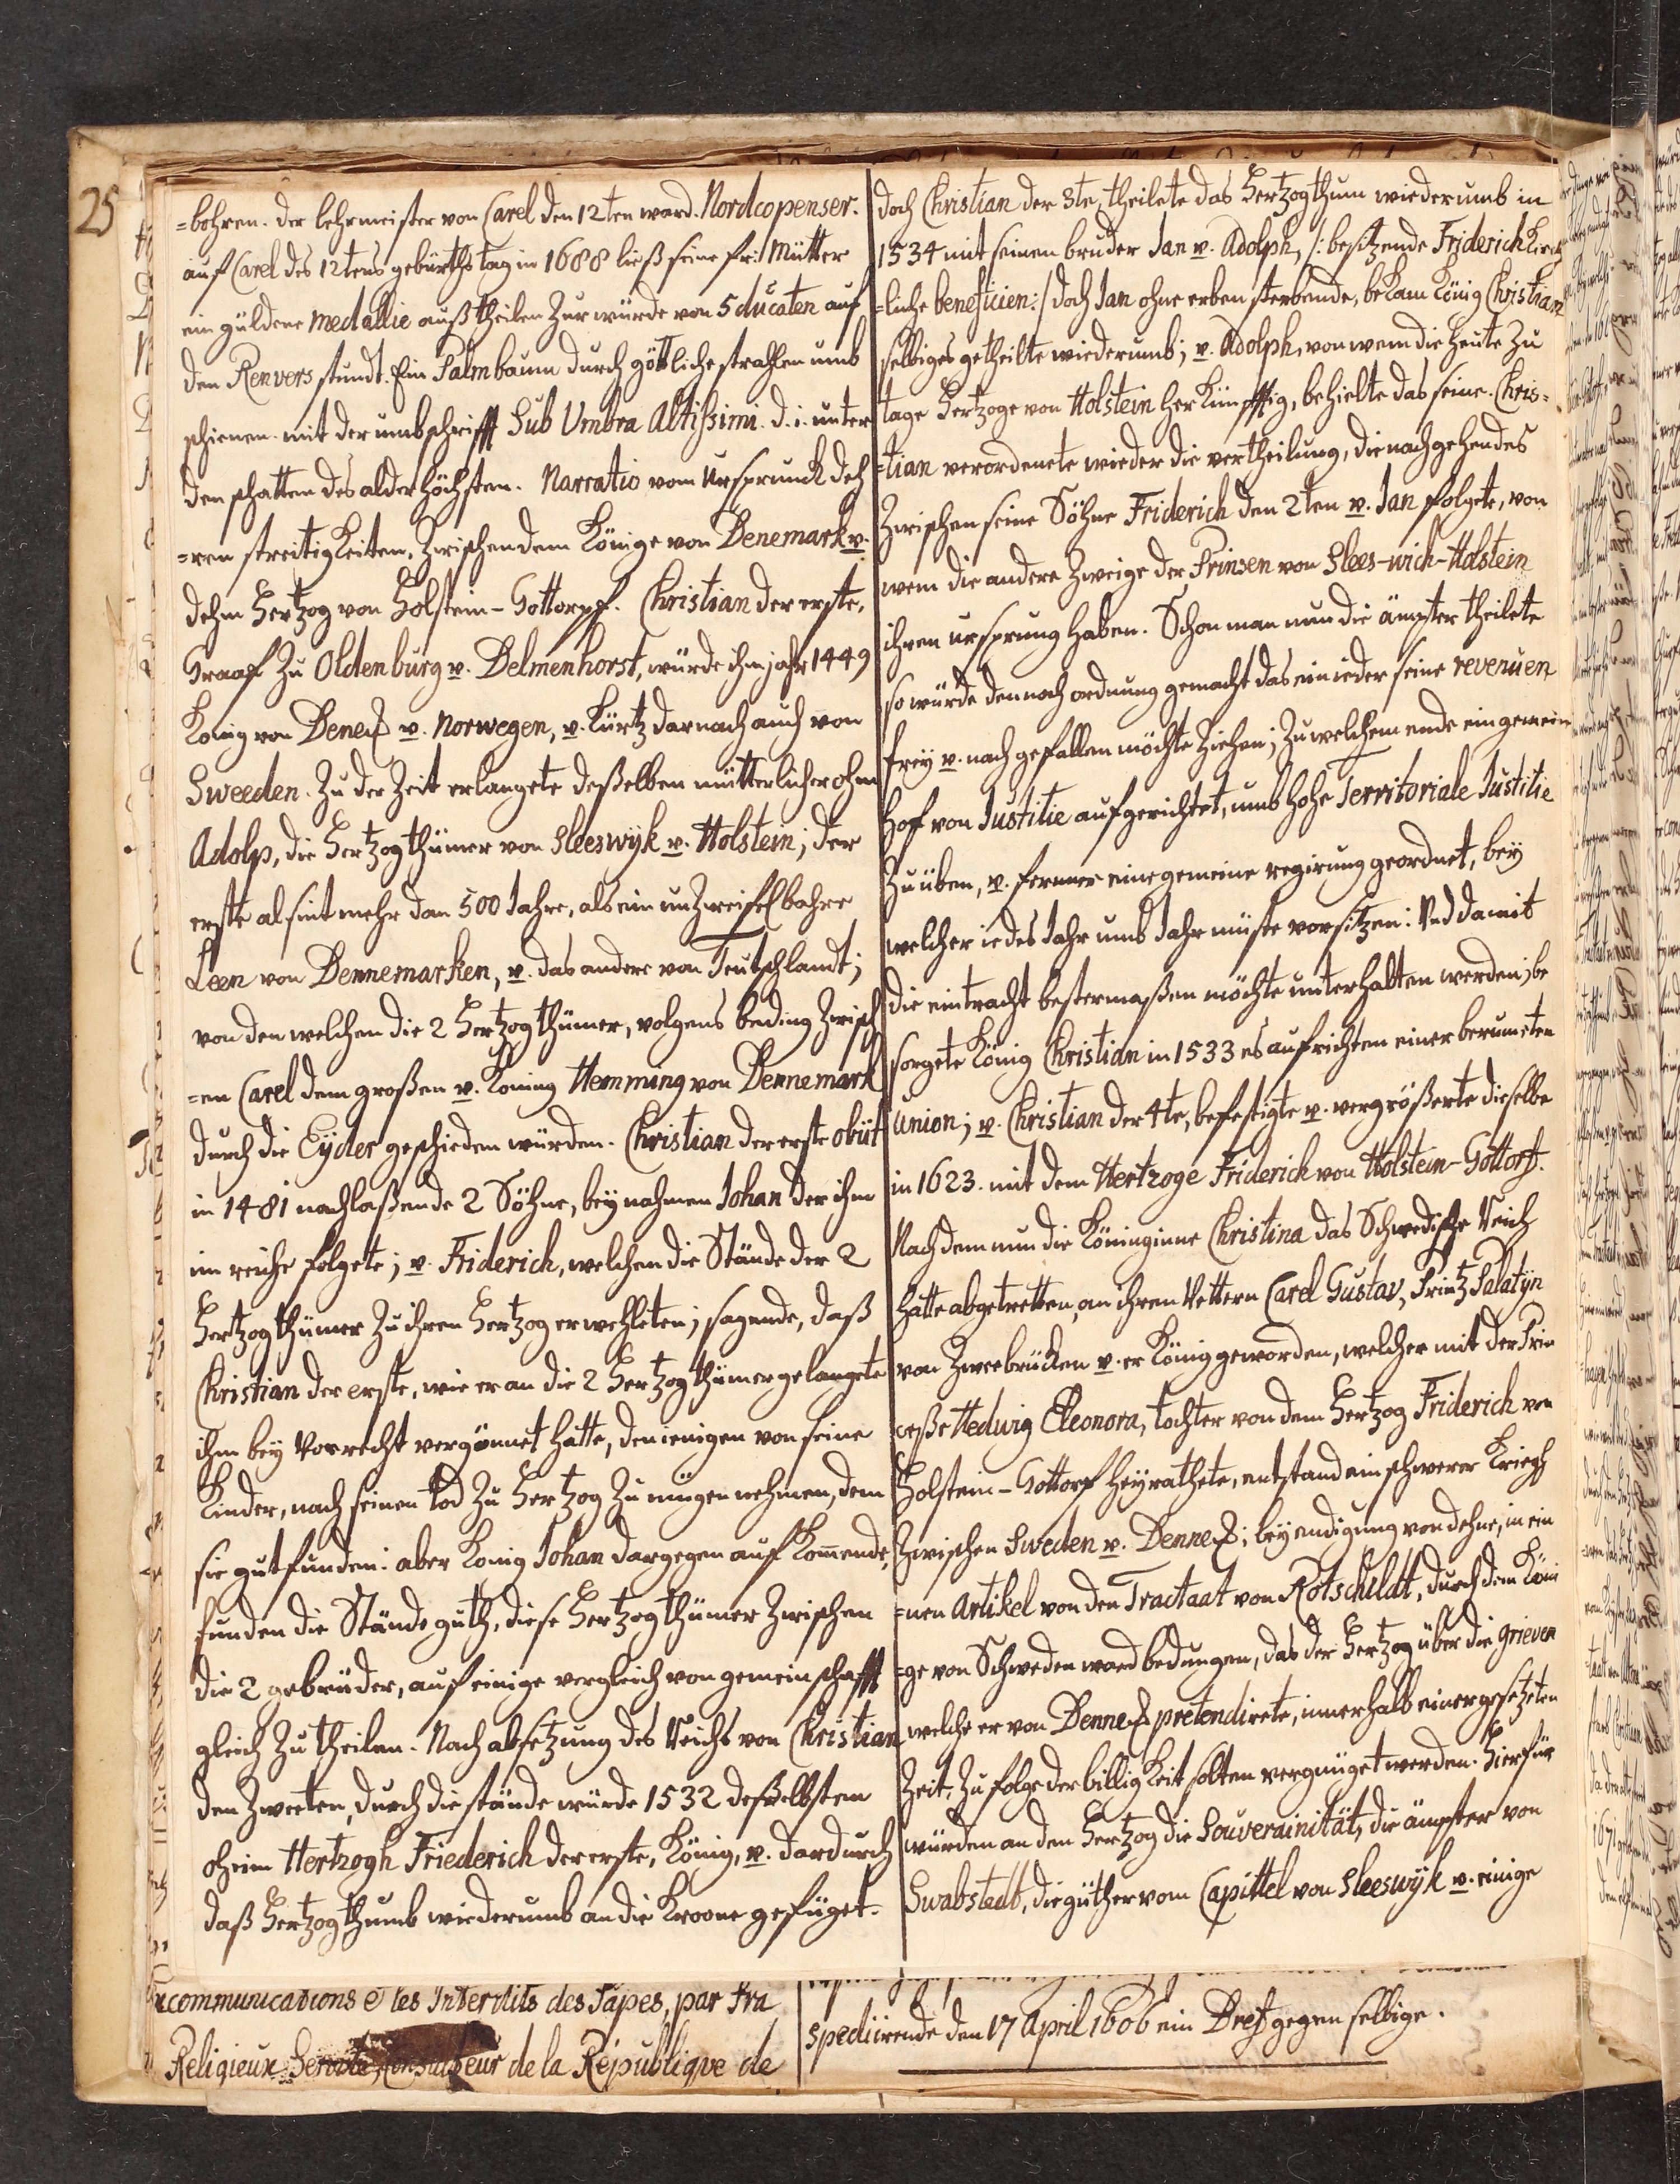 25
=bohren. der lehrmeister von Carel den 12ten ward. Nordcopenser.
auf Carel des 12tens gebürths tag in 1688 ließ seine fr: Mutter
ein güldene medallie auß theilen zur würde von 5 ducaten auf
den Renvers stundt. Ein Palmbaum durch göttliche strahlen umb
schienen. mit der umbschrifft Sub Umbra Altissimi. d. i. unter
den schatten des alderhöchsten. Narratio vom Ursprunck deh
=ren streitigkeiten, zwischen dem Könige von Denemark v.
dehm Hertzog von Holstein-Gottorpf. Christian der erste,
Graaf zu Oldenburg v. Delmenhorst, würde ihm jahr 1449
König von Denem v. Norwegen, v. kürtz darnach auch von
Sweeden. Zu der Zeit erlangete deßelben mütterlicher ohm
Adolp, die Hertzogthümer von Sleeswyk v. Holstein; der
erste al sint mehr dan 500 Jahre, als ein unzweifelbahre
Leen von Dennemarken, v. das andere von Teutschlandt;
von den welchen die 2 Hertzogthümer, volgens beding zwisch
=en Carel dem großen v. Köning Hemming von Dennemark
durch die Eyder geschieden würden. Christian der erste obiit
in 1481 nachlaßende 2 Söhne, bey nahmen Johan der ihm
im reiche folgete; v. Friderich, welchen die Stände der 2
Hertzogthümer zu ihren Hertzog erwehleten; sagende, daß
Christian der erste, wie er an die 2 Hertzogthümer gelangete
ihm bey Vorrecht vergönnet hatte, denienigen von seine
Kinder, nach seinen tod zu Hertzog zu mügen nehmen, dem
sie gutfunden: aber König Johan dargegen auf kommende,
funden die Stände guth, diese Hertzogthümer zwischen
die 2 gebrüder, auf einige vergleich von gemeinschafft
gleich zu theilen. Nach absetzung des Reichs von Christian
den Zweeten, durch die stände würde 1532 deßselbsten
oheim Hertzogh Friederich der erste, König, v. dardurch
daß Hertzogthumb wiederumb an die Kroone gefüget.
doch Christian der 3te, theilete das Hertzogthum wiederumb in
1534 mit seinen bruder Jan v. Adolph, /: besitzende Friderich kirch
=liche beneficien :/ doch Jan ohne erben sterbende, bekam König Christian
selbiges getheilte wiederumb; v. Adolph, von wem die heute zu
tage Hertzoge von Holstein herkünfftig, behielte das seine. Chris=
=tian verordenete wieder die vertheilung, die nachgehendes
zwischen seine Söhne Friderich den 2ten v. Jan folgete, von
wem die andere Zweige der Prinsen von Slees-wich-Holstein
ihren ursprung haben. Schon man nun die ämpter theilete
so würde dennoch ordnung gemacht das ein ieder seine revenuen
frey v. nach gefallen möchte ziehen; zu welchem ende ein gemein
Hof von Justitie aufgerichtet, umb hohe Territoriale Justitie
zu üben, v. ferner eine gemeine regirung geordnet, bey
welcher iedes Jahr umb Jahr müste vorsitzen: Und damit
die eintracht bestermaßen möchte unterhalten werden; be
sorgete König Christian in 1533 es aufrichten einer berumeten
Union; v. Christian der 4te, befestigte v. vergrößerte dieselbe
in 1623. mit dem Hertzoge Friderich von Holstein-Gottorf.
Nach dem nun die Köninginne Christina das Schwedische Reich
hatte abgetretten, an ihren Vettern Carel Gustav, Printz Palatyn
von Zweebrücken v. er König geworden, welcher mit der Prin
ceße Hedwig Eleonora, tochter von dem Hertzog Friderich von
Holstein-Gottorf heyrathete, entstand ein schwerer Kriegh
zwischen Sweden v. Dennem; bey endigung von dehne, in ein
=nen Artikel von den Tractaat von Rotschildt, durch dem Köni
=ge von Schweden ward bedungen, das der Hertzog über die grieven
welche er von Dennem pretendirete, innerhalb einer gesetzeten
Zeit, zu folge der billigkeit solten vergnüget werden. Hierfür
würden an den Hertzog die Souverainität, die ämpter von
Swabstedt, die güther vom Capittel von Sleeswyk v. einige
communications e les Interdits des Papes, par fra
Religieux de la Republique de
spediirende den 17 April 1606 ein Bref gegen selbige.